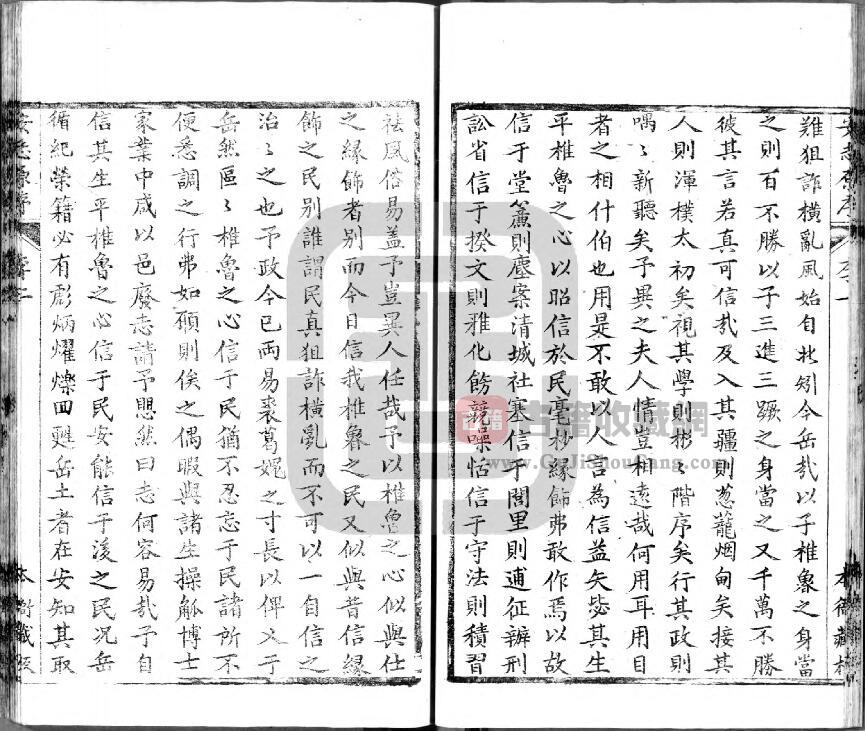 難狙詐橫亂風始自北矧今岳哉以子椎魯之身當
之則百不勝以子三進三蹶之身當之又千萬不勝
彼其言若真可信哉及入其疆則蔥蘢烟甸矣接其
人則渾樸太初矣視其學則彬〻階序矣行其政則
喁〻新聽矣予異之夫人情豈相遠哉何用耳用目
者之相什伯也用是不敢以人言為信益矢毖其生
平椎魯之心以昭信於民毫杪緣飾弗敢作焉以故
信于堂簾則塵案清城社塞信于閭里則逋征辦刑
訟省信于揆文則雅化飭競噪恬信于守法則積習
祛風俗易蓋予豈異人任哉予以椎魯之心似與仕
之緣飾者别而今日信我椎魯之民又似與昔信緣
飾之民别誰謂民真狙詐橫亂而不可以一自信之
治〻之也予政今已兩易裘葛娓之寸長以俾乂于
岳然區〻椎魯之心信于民猶不忍忘于民諸所不
便悉調之行弗如願則俟之偶暇與諸生操觚博士
家業中咸以邑廢志請予愳然曰志何容易哉予自
信其生平椎魯之心信于民安能信于後之民况岳
循紀榮籍必有彪炳耀爍回甦岳土者在安知其取
序一
序二
本衙藏板
古籍收藏網
www.GuJiShouCang.com